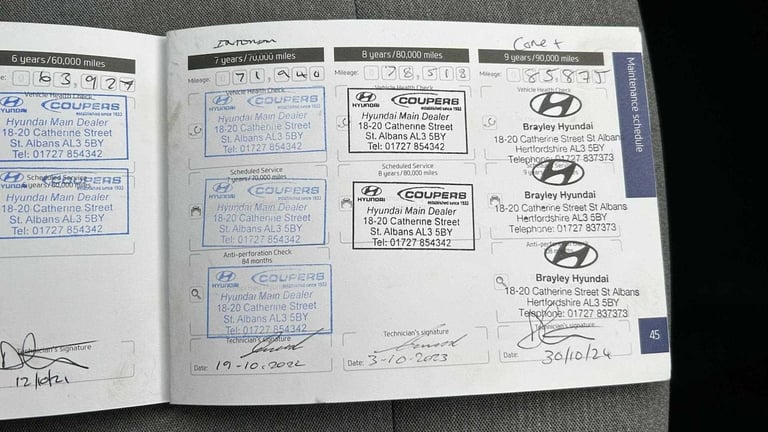 6 years/60,000 miles
63,927
Vehicle Health Check
HYUNDAI COUPERS
established since 1932
Hyundai Main Dealer
18-20 Catherine Street
St. Albans AL3 5BY
Tel: 01727 854342
Scheduled Service
6 years/60,000 miles
HYUNDAI COUPERS
Hyundai Main Dealer
18-20 Catherine Street
St. Albans AL3 5BY
Tel: 01727 854342
Technician's signature
12/10/21
7 years/70,000 miles
Mileage: 071,940
Vehicle Health Check
HYUNDAI COUPERS
established since 1932
Hyundai Main Dealer
18-20 Catherine Street
St. Albans AL3 5BY
Tel: 01727 854342
Scheduled Service
7 years/70,000 miles
HYUNDAI COUPERS
established since 1932
Hyundai Main Dealer
18-20 Catherine Street
St. Albans AL3 5BY
Tel: 01727 854342
Anti-perforation Check
84 months
HYUNDAI COUPERS
established since 1932
Hyundai Main Dealer
18-20 Catherine Street
St. Albans AL3 5BY
Tel: 01727 854342
Technician's signature
Date: 19-10-2022
8 years/80,000 miles
Mileage: 078,518
HYUNDAI COUPERS
established since 1932
Hyundai Main Dealer
18-20 Catherine Street
St. Albans AL3 5BY
Tel: 01727 854342
Scheduled Service
8 years/80,000 miles
HYUNDAI COUPERS
established since 1932
Hyundai Main Dealer
18-20 Catherine Street
St. Albans AL3 5BY
Tel: 01727 854342
Technician's signature
Date: 3-10-2023
9 years/90,000 miles
Mileage: 085,875
Vehicle Health Check
Brayley Hyundai
18-20 Catherine Street St Albans
Hertfordshire AL3 5BY
Telephone: 01727 837373
Brayley Hyundai
18-20 Catherine Street St Albans
Hertfordshire AL3 5BY
Telephone: 01727 837373
Brayley Hyundai
18-20 Catherine Street St Albans
Hertfordshire AL3 5BY
Telephone: 01727 837373
Technician's signature
Date: 30/10/24
Maintenance schedule
45